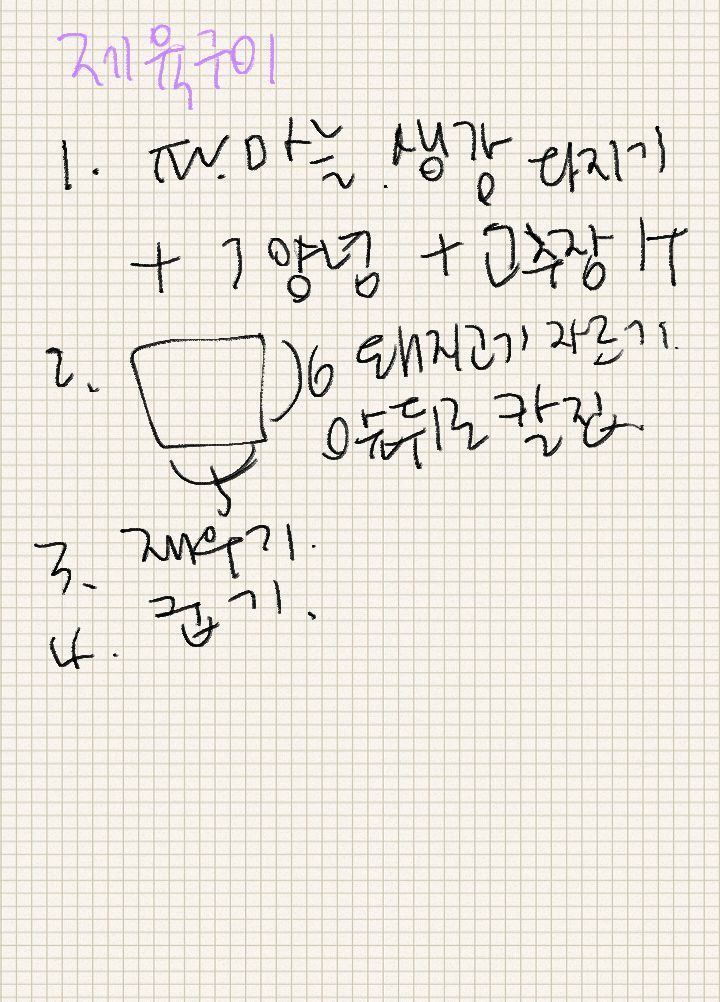 제육구이
1. 파.마늘.생강 다지기
+ 기양념 + 고추장 1T
2. 6 돼지고기 자르기.
앞뒤로 칼집.
5
3. 재우기.
4. 굽기.